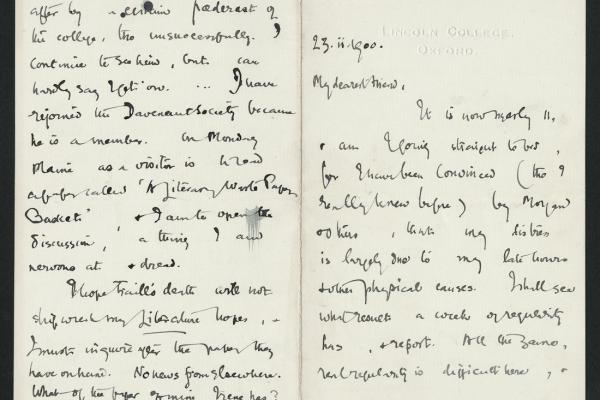 after by a certain pæderast of
the college, tho unsuccessfully. I
continue to see him, but can
hardly say Ἔρτι or. ... I have
rejoined the Davenant Society because
he is a member. On Monday
Maine as a visitor is to read
a paper called 'A Literary Waste Paper
Basket' & I am to open the
discussion, a thing I am
nervous at & dread.
I hope Traill's death will not
shipwreck my Literature hopes,
I must inquire after the paper they
have on hand. No news from elsewhere.
What of the paper of mine Irene has?
LINCOLN COLLEGE,
OXFORD.
23.ii.1900.
My dearest friend,
It is now nearly 11,
& am I going straight to bed,
for I have been convinced (tho I
really knew before) by Morgan &
others, that my distress
is largely due to my late hours
& other physical causes. I shall see
what result a week of regularity
has, & report. All the same,
real regularity is difficult here, &